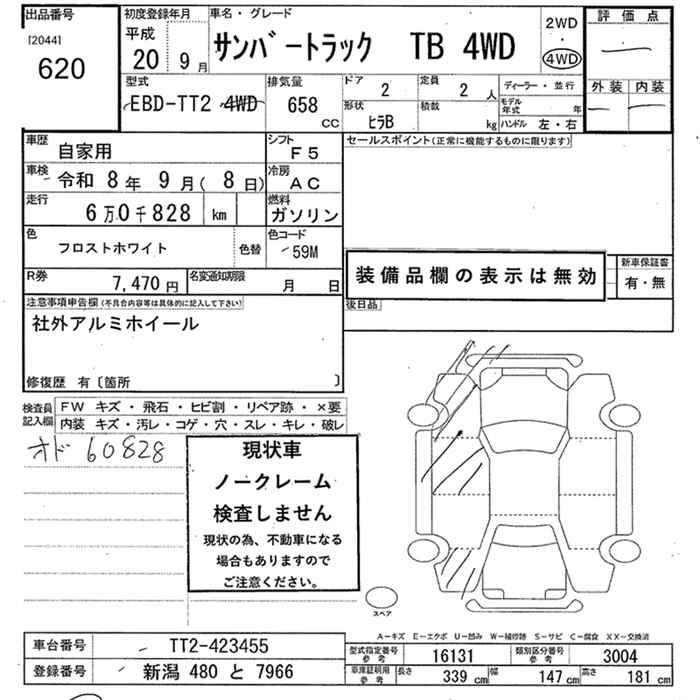 出品番号
[2044]
620
初度登録年月
平成
20 9 月
車名・グレード
サンバートラック TB 4WD
2WD
・
4WD
評価点
外装 内装
型式
EBD-TT2 4WD
排気量
658
CC
ドア
2
定員
2 人
形状
ヒラB
積載
kg
ディーラー・並行
モデル年式 年
ハンドル 左・右
車歴
自家用
シフト
F5
車検
令和 8年 9月( 8日)
冷房
AC
走行
6万0千828 km
燃料
ガソリン
色
フロストホワイト
色替
色コード
59M
R券
7,470 円
名変通知期限
月 日
セールスポイント(正常に機能するものに限ります)
装備品欄の表示は無効
新車保証書
有・無
後日品
注意事項申告欄(不具合内容等は具体的に記入して下さい)
社外アルミホイール
修復歴 有〔箇所 〕
検査員記入欄
FW キズ・飛石・ヒビ割・リペア跡・×要
内装 キズ・汚レ・コゲ・穴・スレ・キレ・破レ
オド 60828
現状車
ノークレーム
検査しません
現状の為、不動車になる
場合もありますので
ご注意ください。
スペア
A−キズ E−エクボ U−凹み W−補修跡 S−サビ C−腐食 XX−交換済
車台番号
TT2-423455
登録番号
新潟 480 と 7966
型式指定番号
参考
16131
類別区分番号
参考
3004
車庫証明用
参考
長さ 339 cm
幅 147 cm
高さ 181 cm